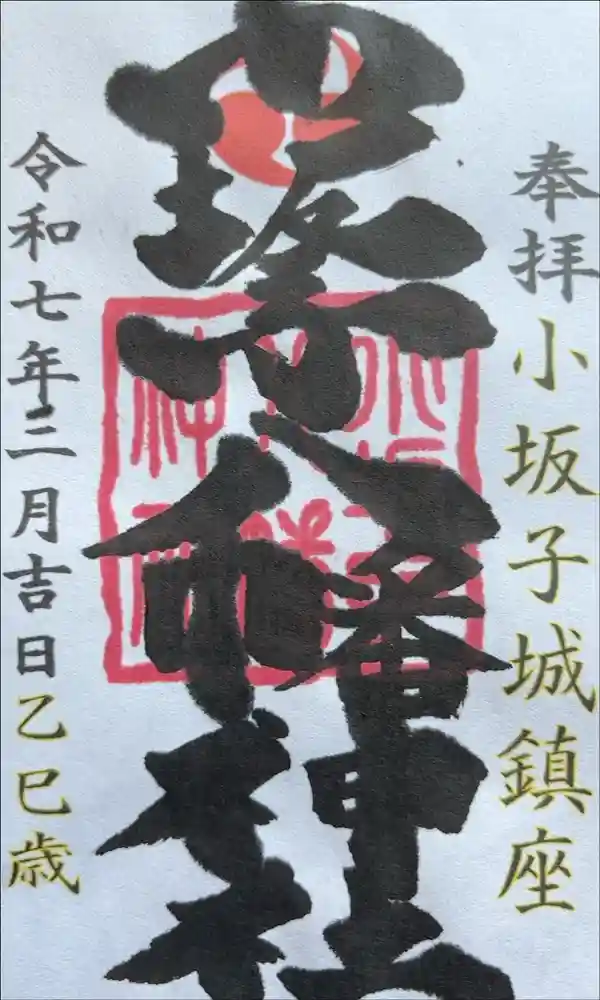 奉拝 小坂子城鎮座
八幡神社
令和七年三月吉日乙巳歳